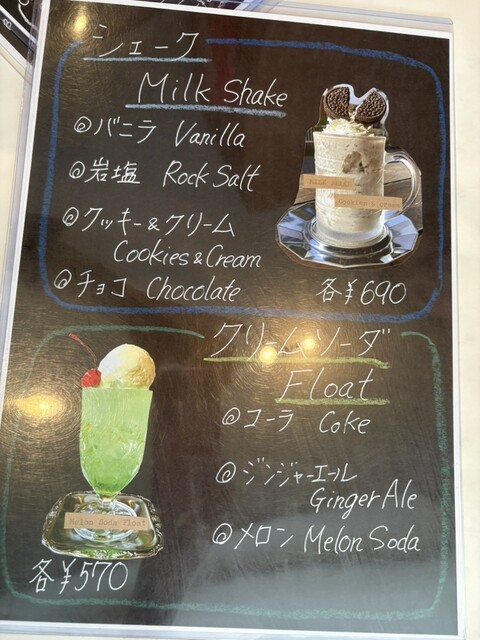 シェーク
Milk Shake
◎バニラ Vanilla
◎岩塩 Rock Salt
◎クッキー&クリーム
Cookies&Cream
◎チョコ Chocolate
Cookies & Cream
各¥690
クリームソーダ
Float
◎コーラ Coke
◎ジンジャーエール
Ginger Ale
◎メロン Melon Soda
Melon Soda Float
各¥570